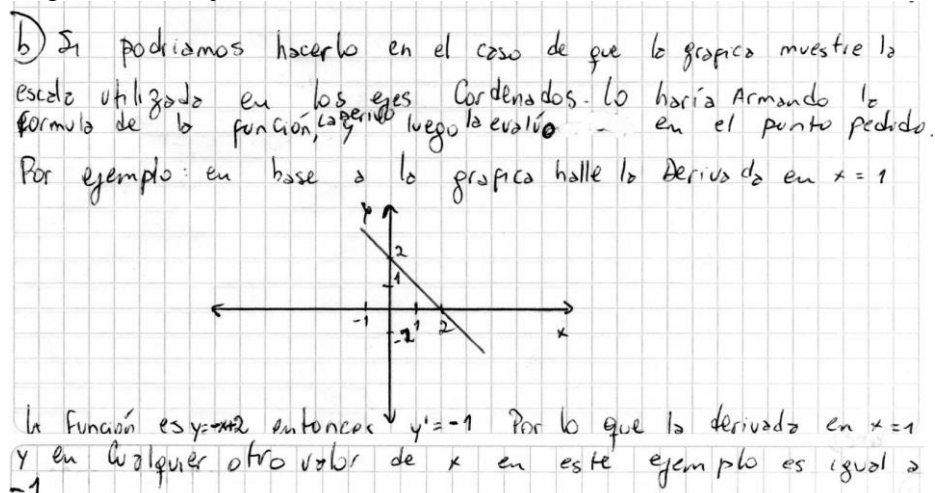 b) Si podríamos hacerlo en el caso de que la grafica muestre la
escala utilizada en los ejes Cordenados. Lo haría Armando la
formula de la función, la derivo y luego la evalúo en el punto pedido.
Por ejemplo: en base a la grafica halle la Derivada en x = 1
y
2
1
-1 1 2
-1
x
la Función es y=-x+2 entonces y'=-1 Por lo que la derivada en x=1
y en cualquier otro valor de x en este ejemplo es igual a
-1